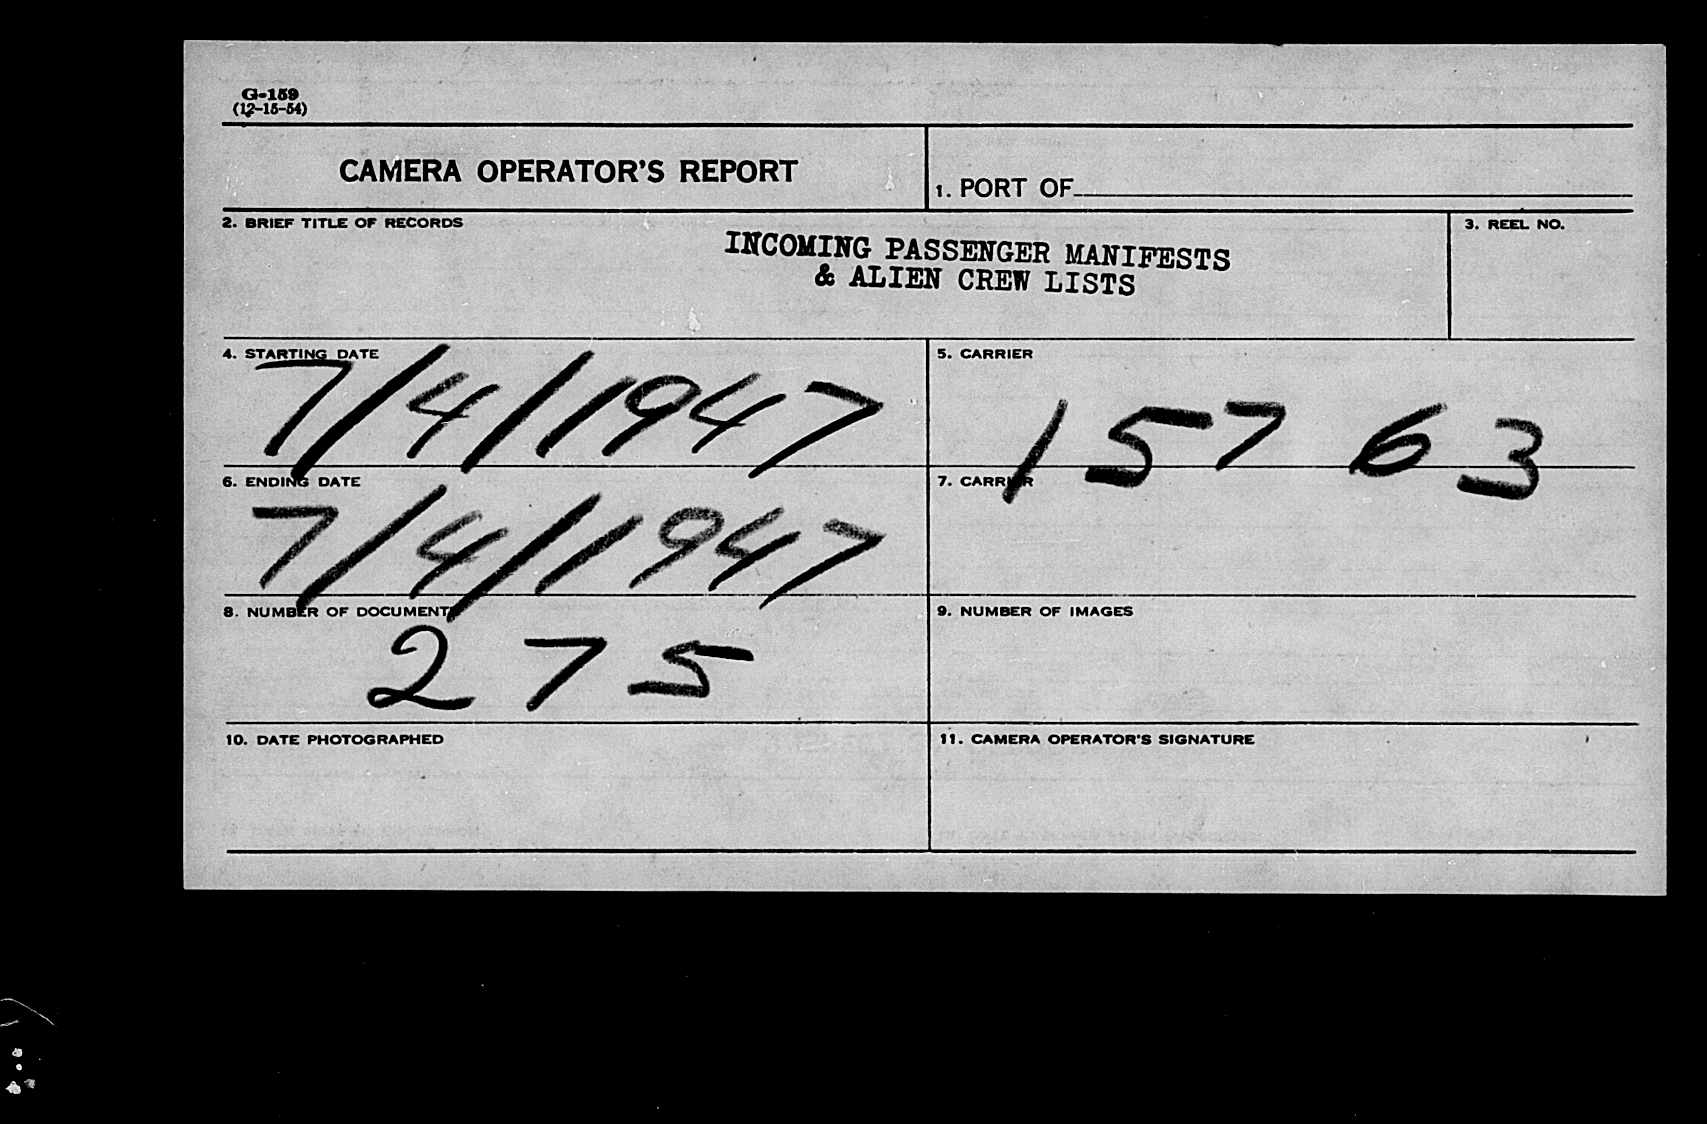 G-159
(12-15-54)
CAMERA OPERATOR'S REPORT
1. PORT OF
2. BRIEF TITLE OF RECORDS
INCOMING PASSENGER MANIFESTS
& ALIEN CREW LISTS
3. REEL NO.
4. STARTING DATE
7/4/1947
5. CARRIER
15763
6. ENDING DATE
7/4/1947
7. CARRIER
8. NUMBER OF DOCUMENTS
275
9. NUMBER OF IMAGES
10. DATE PHOTOGRAPHED
11. CAMERA OPERATOR'S SIGNATURE